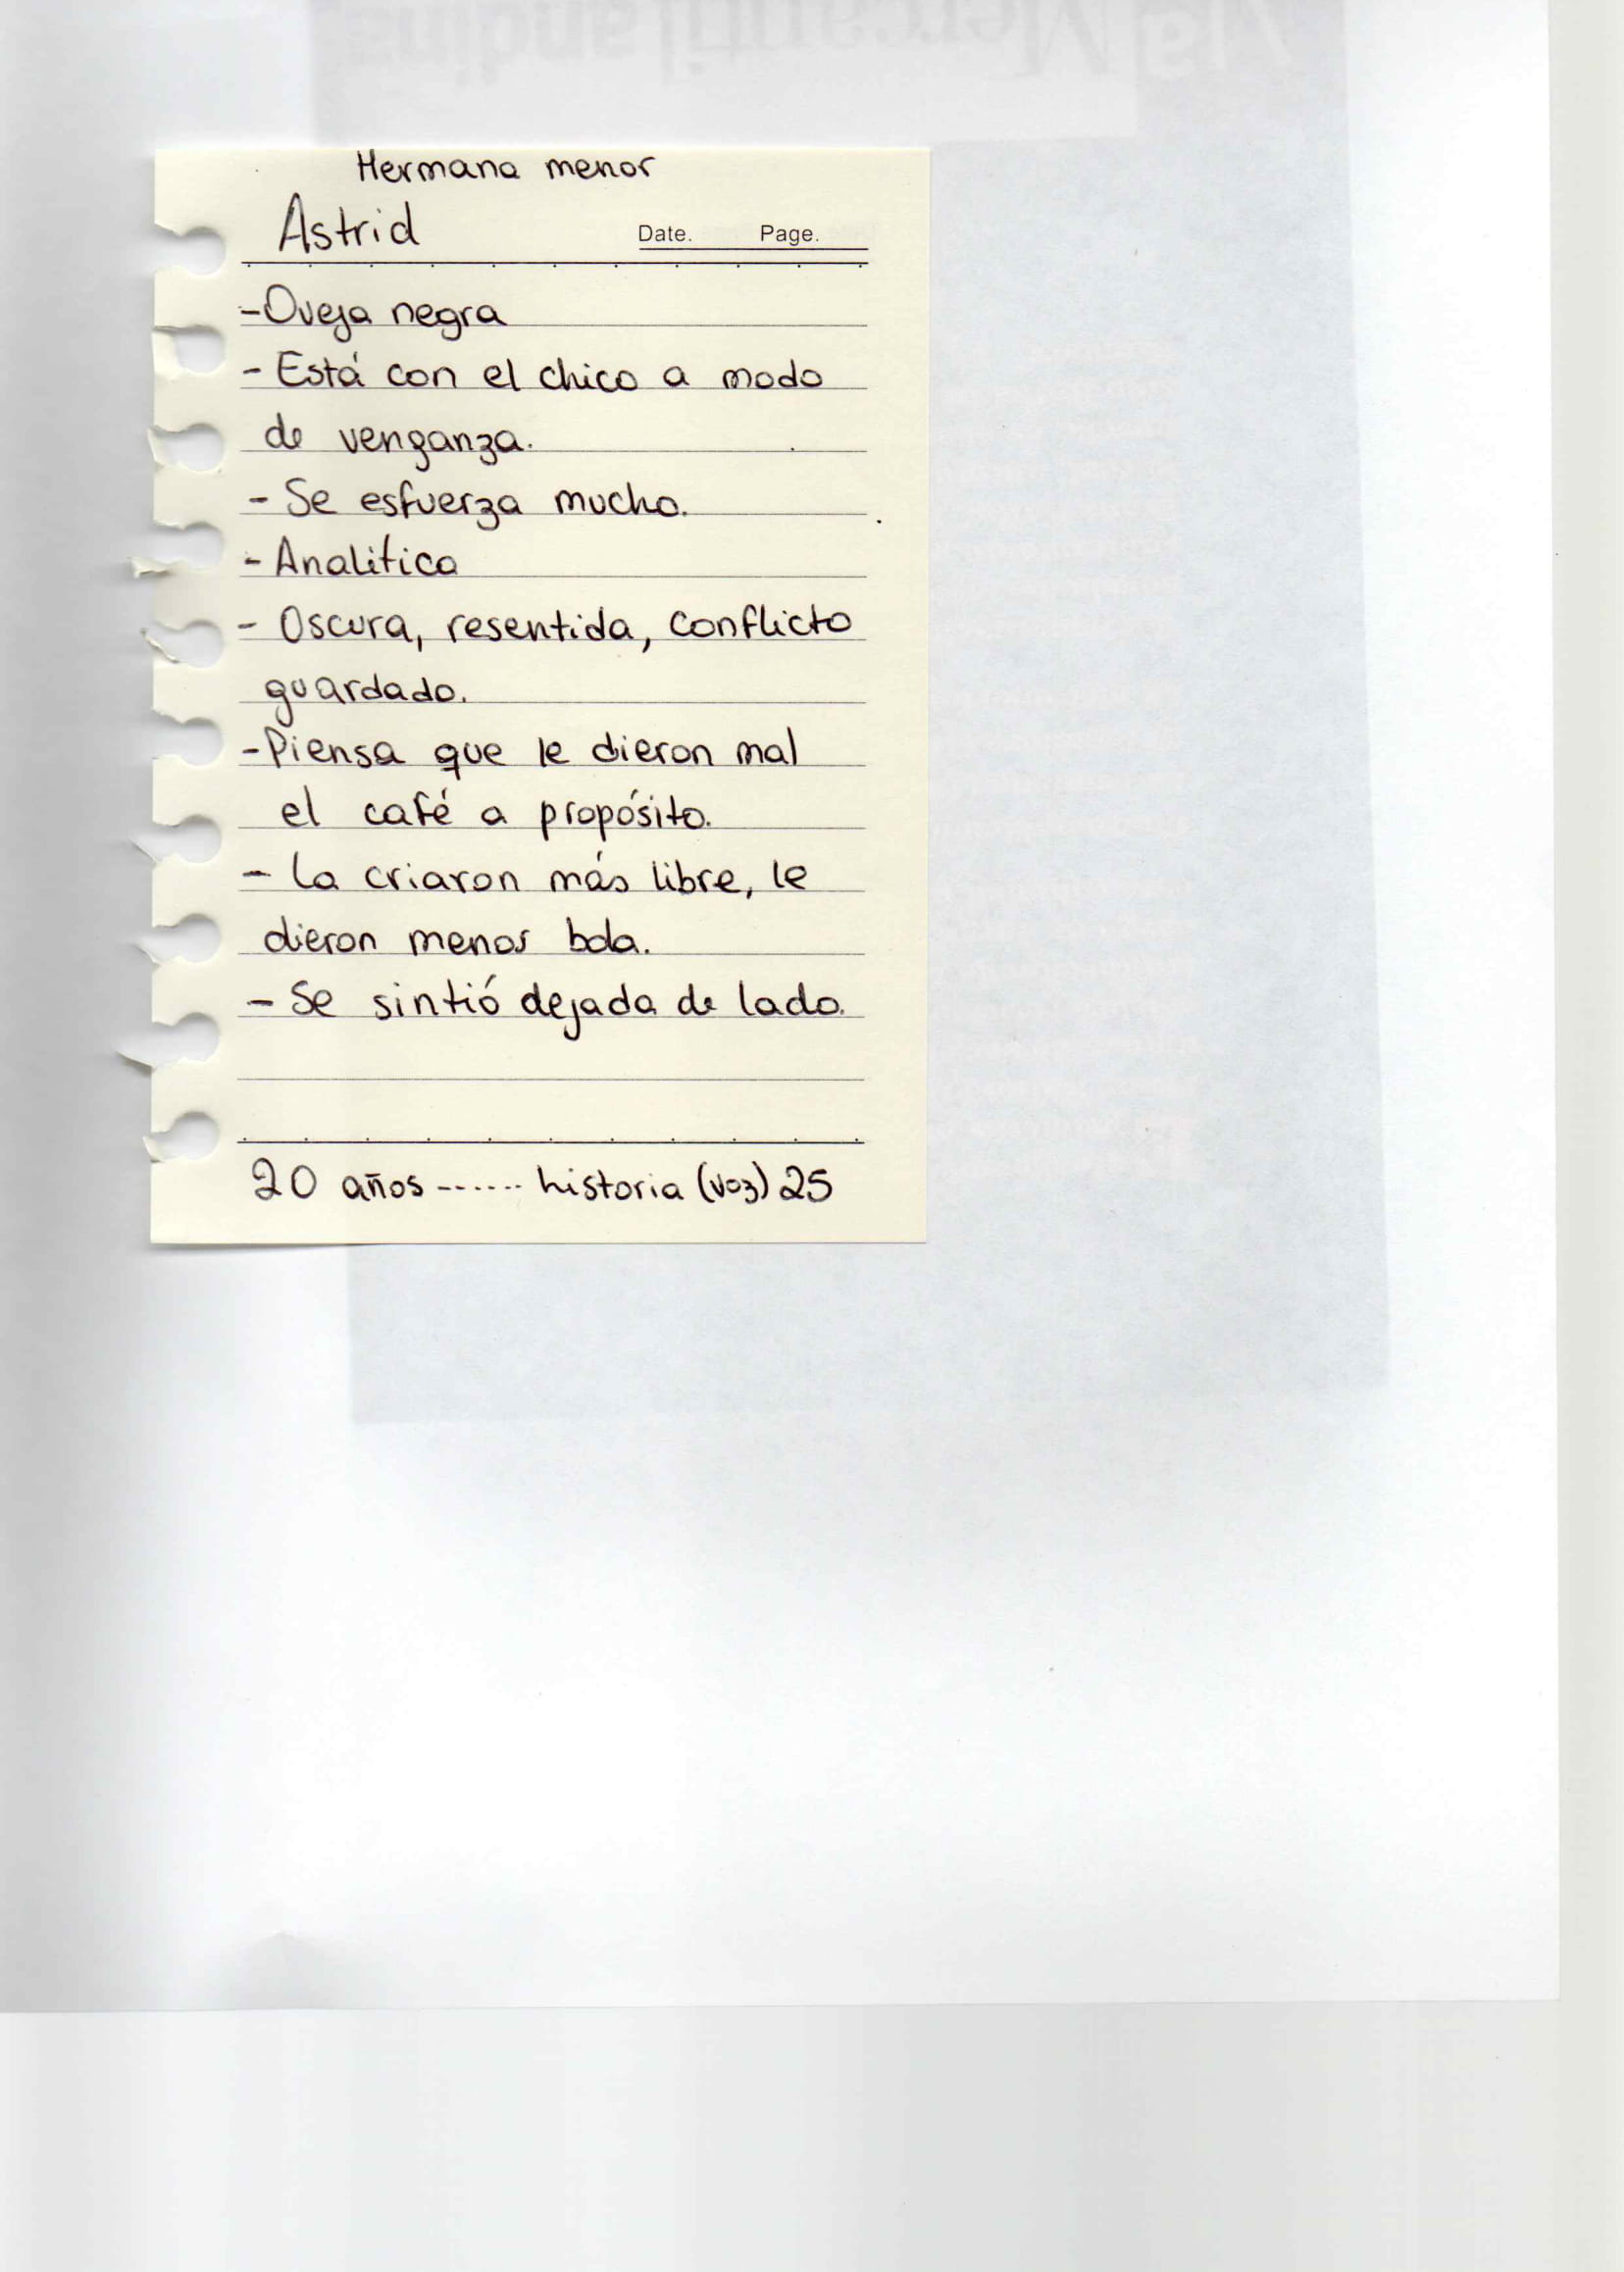 Hermana menor
Astrid
Date. Page.
-Oveja negra
- Está con el chico a modo
de venganza.
- Se esfuerza mucho.
- Analítica
- Oscura, resentida, conflicto
guardado.
-Piensa que le dieron mal
el café a propósito.
- La criaron más libre, le
dieron menos bola.
- Se sintió dejada de lado.
20 años ------ historia (voz) 25